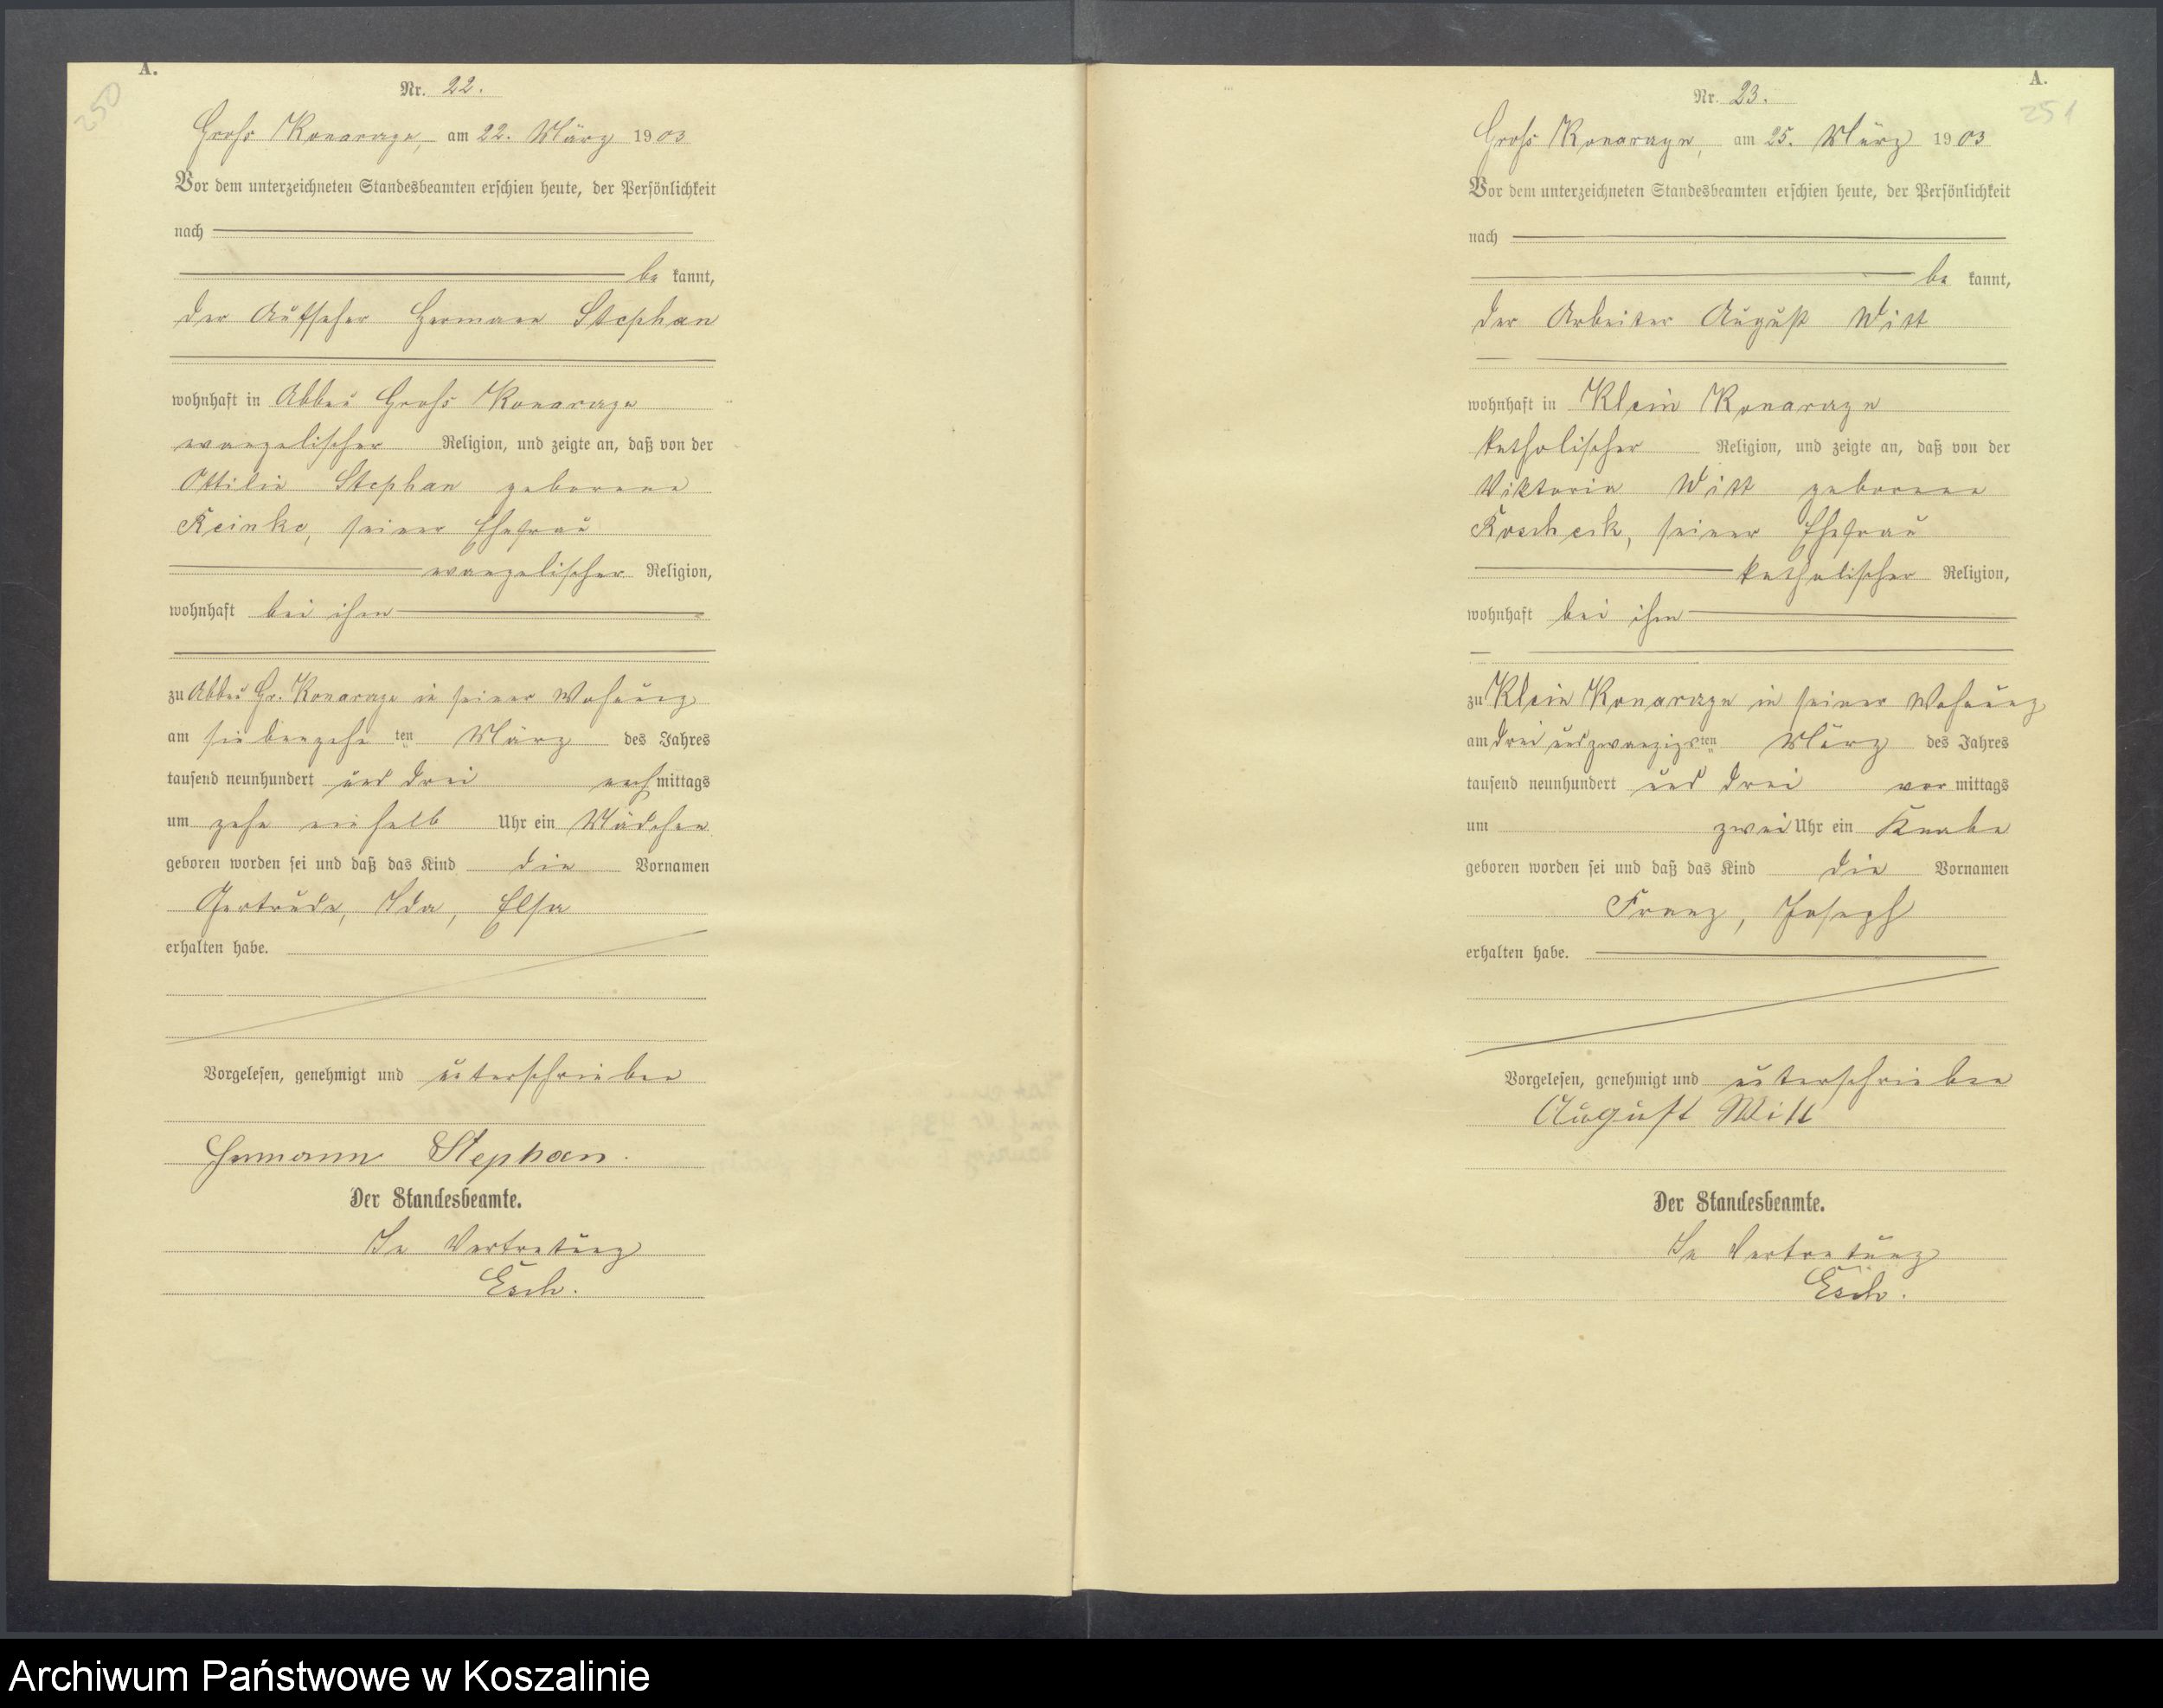 A.
250
Nr. 22.
Groß Konarzyn, am 22. März 1903
Vor dem unterzeichneten Standesbeamten erschien heute, der Persönlichkeit
nach
be kannt,
der Aufseher Hermann Stephan
wohnhaft in Abbau Groß Konarzyn
evangelischer Religion, und zeigte an, daß von der
Ottilie Stephan geborene
Reinke, seiner Ehefrau
evangelischer Religion,
wohnhaft bei ihm
zu Abbau Gr. Konarzyn in seiner Wohnung
am siebenzehn ten März des Jahres
tausend neunhundert und drei nachmittags
um zehn einhalb Uhr ein Mädchen
geboren worden sei und daß das Kind die Vornamen
Gertrude, Ida, Elsa
erhalten habe.
Vorgelesen, genehmigt und unterschrieben
Hermann Stephan.
Der Standesbeamte.
In Vertretung
Esch.
A.
251
Nr. 23.
Groß Konarzyn, am 25. März 1903
Vor dem unterzeichneten Standesbeamten erschien heute, der Persönlichkeit
nach
be kannt,
der Arbeiter August Witt
wohnhaft in Klein Konarzyn
katholischer Religion, und zeigte an, daß von der
Viktoria Witt geborene
Roscheck, seiner Ehefrau
katholischer Religion,
wohnhaft bei ihm
zu Klein Konarzyn in seiner Wohnung
am drei und zwanzigsten März des Jahres
tausend neunhundert und drei vor mittags
um zwei Uhr ein Knabe
geboren worden sei und daß das Kind die Vornamen
Franz, Joseph
erhalten habe.
Vorgelesen, genehmigt und unterschrieben
August Witt
Der Standesbeamte.
In Vertretung
Esch.
Archiwum Państwowe w Koszalinie